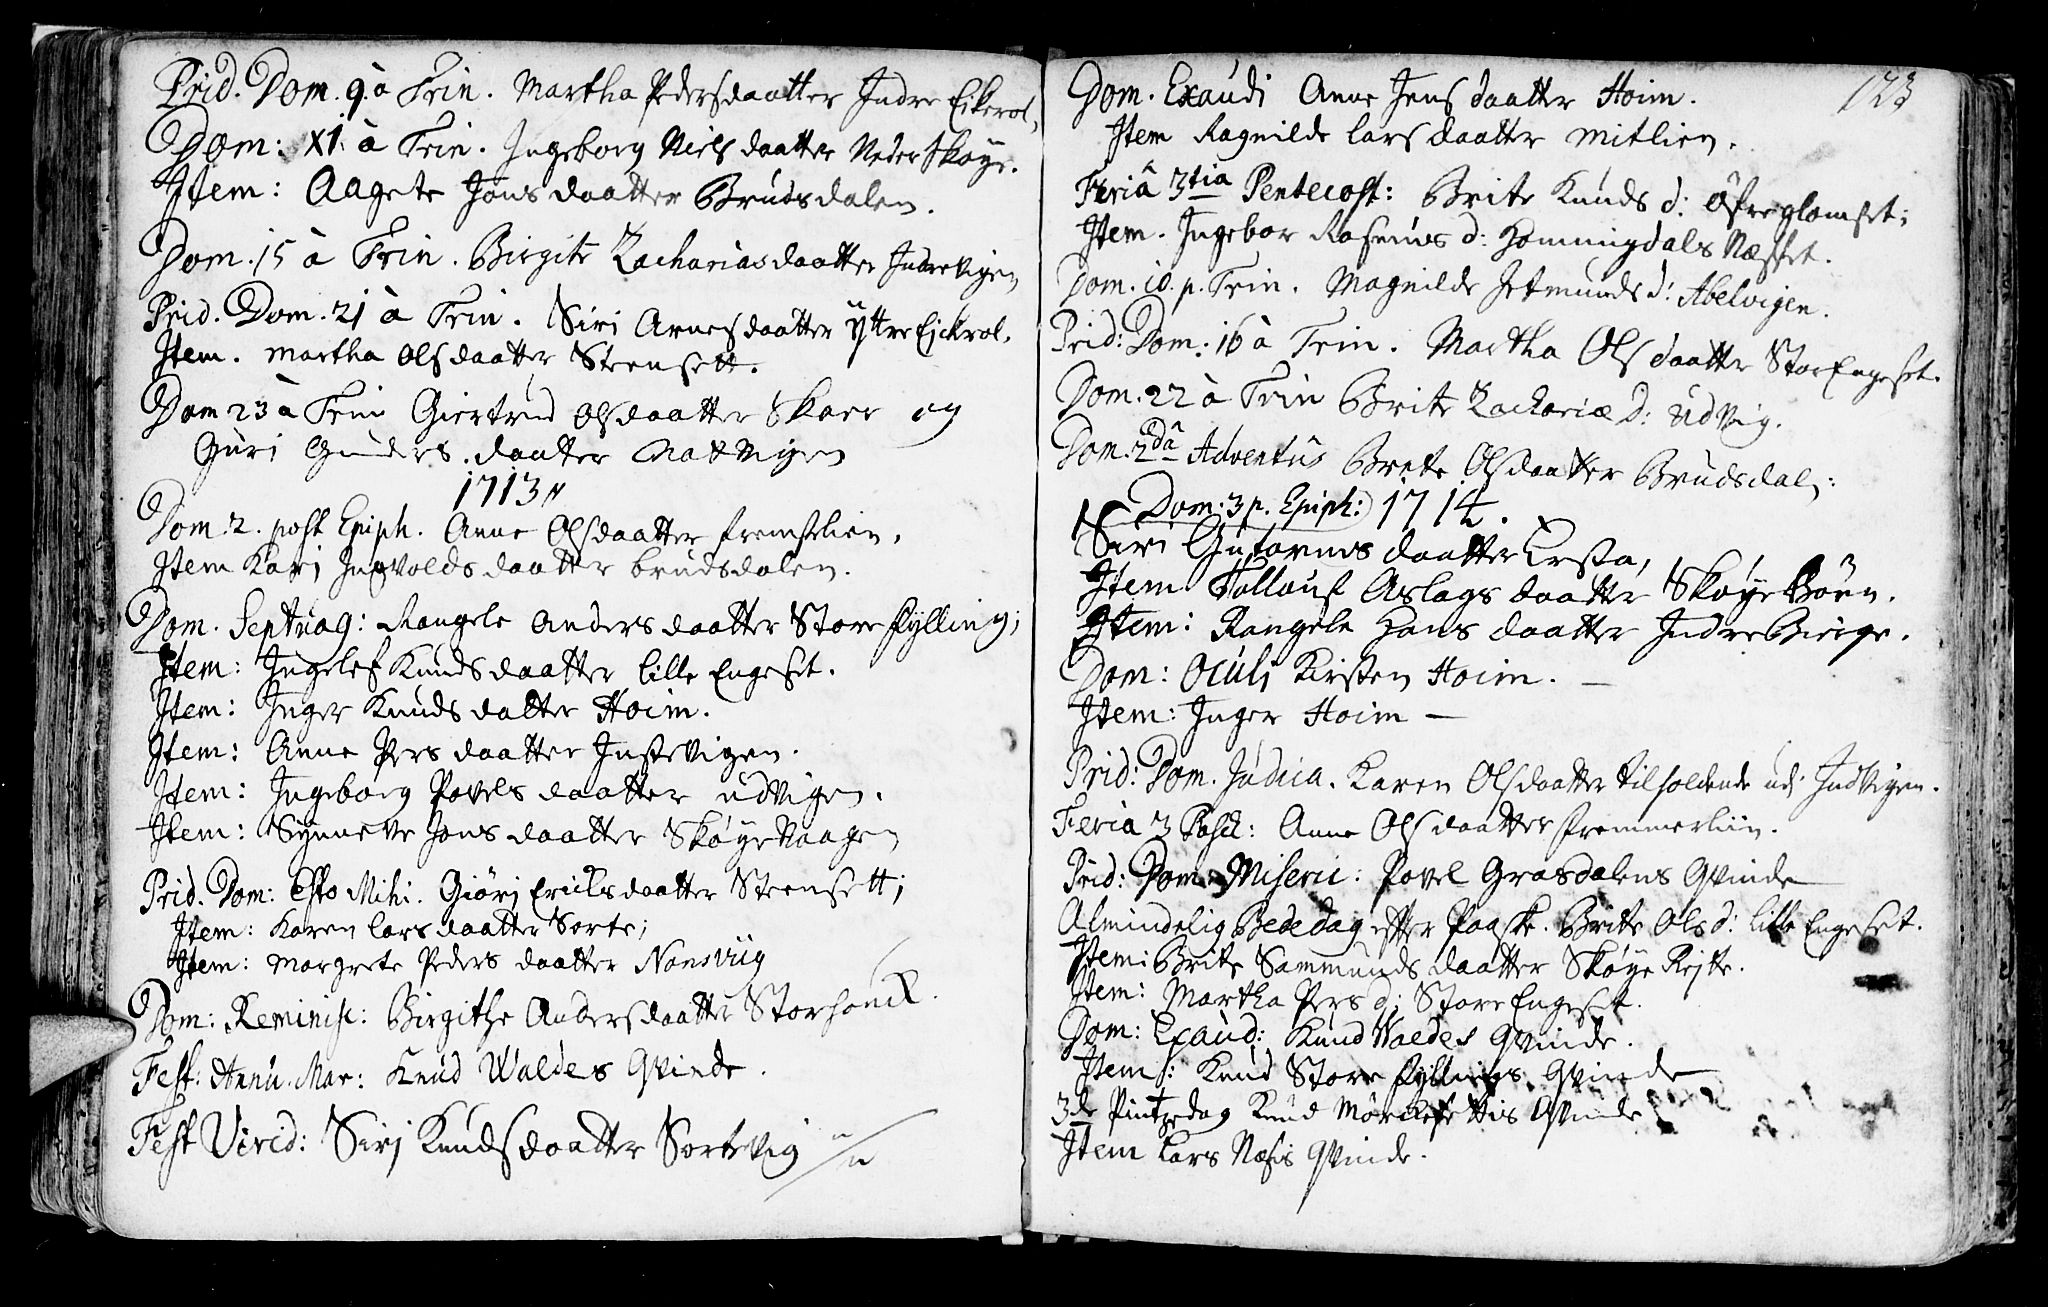 Prid. Dom. 9. à Trin. Martha Pedersdaatter Indre Eikerol,
Dom: XI. à Trin. Ingeborg Niels daatter Neder Skøye.
Item: Aagete Jons daatter Brudsdalen.
Dom. 15 à Trin. Birgite Zacharias daatter Indrevigen,
Prid. Dom. 21 à Trin. Siri Arnesdaatter Yttre Eickrol.
Item. Martha Olsdaatter Steensett.
Dom 23 à Trin Giertrud Olsdaatter Skare og
Guri Gunders. daatter Nattvigen
1713
Dom. 2. post Epiph. Anne Olsdaatter fremstelien,
Item Kari Ingvolds daatter brudsdalen.
Dom. Septuag: Rangele Anders daatter Store fylling;
Item: Ingelef Knuds daatter lille Engeset.
Item: Inger Knuds datter Hoim.
Item: Anne Pers daatter Instevigen.
Item: Ingeborg Povels daatter udvigen.
Item: Synneve Jons daatter Skøye Haagen
Prid. Dom: Esto Mihi. Giøri Erichsdaatter Steensett;
Item: Karen Lars daatter Sorte;
Item: Margrete Peders daatter Nonsviig
Dom: Reminisc: Birgithe Andersdaatter Storhouck.
Fest: Annu. Mar: Knud Waldes Qvinde.
Fest Virid: Siri Knudsdaatter Sortevig
123
Dom. Exaudi Anne Jens daatter Hoim.
Item Ragnilde Lars daatter Mitlien.
Feriâ 3tia Pentecost: Brite Knuds d: Øfre glomset;
Item. Ingebor Rasmus d: Hommingdals Næsset.
Dom. 10. p. Trin. Magnilde Jetmunds d: Abelvigen.
Prid: Dom: 16 à Trin. Martha Olsdaatter Stor Engeset.
Dom. 22 à Trin Brite Zachariæ D: Udvig.
Dom. 2dâ Adventûs Brete Olsdaatter Brudsdal:
Dom: 3 p. Epiph: 1714.
Siri Gutormsdaatter Ersta,
Item Tollouf Aslags daatter Skøye Børn.
Item: Rangele Hans daatter Indre Bierge.
Dom: Oculi Kirsten Hoim. —
Item: Inger Hoim —
Prid: Dom. Judica. Karen Olsdaatter tilholdende udi Indvigen.
Feria 3 Pasch: Anne Olsdaatter fremmerliin.
Prid: Dom. Miseric: Povel Grasdalens Qvinde
Almindelig Bededag efter Paaske. Brite Ols d: lille Engeset.
Item: Brite Sammunds daatter Skøye Rejtte.
Item: Martha Pers d: Store Engeset.
Dom: Exaud: Knud Waldes Qvinde.
Item: Knud Store fyllings Qvinde
3de Pintzedag Knud Qvinde
Item Lars Næsis Qvinde.